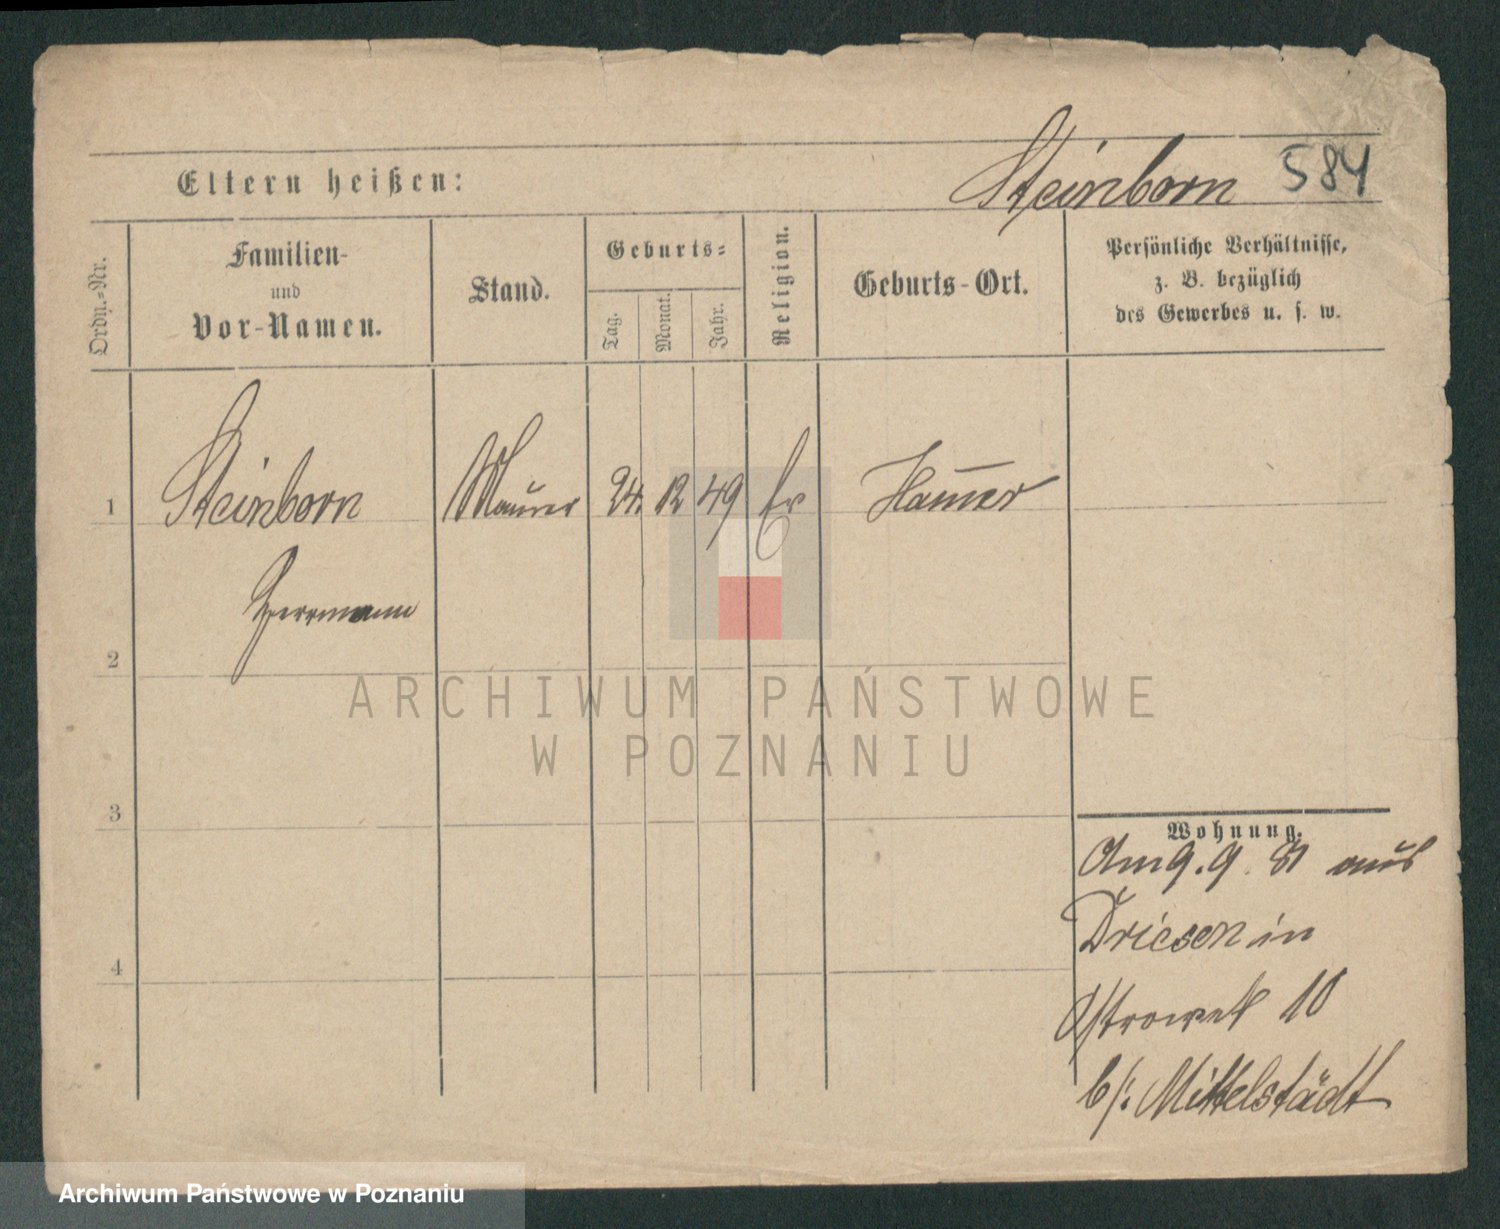 Steinborn 584
Eltern heißen:
Ordn.-Nr.
Familien-
und
Vor-Namen.
Stand.
Geburts-
Tag.
Monat.
Jahr.
Religion.
Geburts-Ort.
Persönliche Verhältnisse,
z. B. bezüglich
des Gewerbes u. s. w.
1 Steinborn Maurer 24. 12 49 Ev Ham̄er
Herrmann
2
3
4
Wohnung.
Am 9.9. 81 aus
Driesen in
Ostrowek 10
b/: Mittelstädt
ARCHIWUM PAŃSTWOWE
W POZNANIU
Archiwum Państwowe w Poznaniu